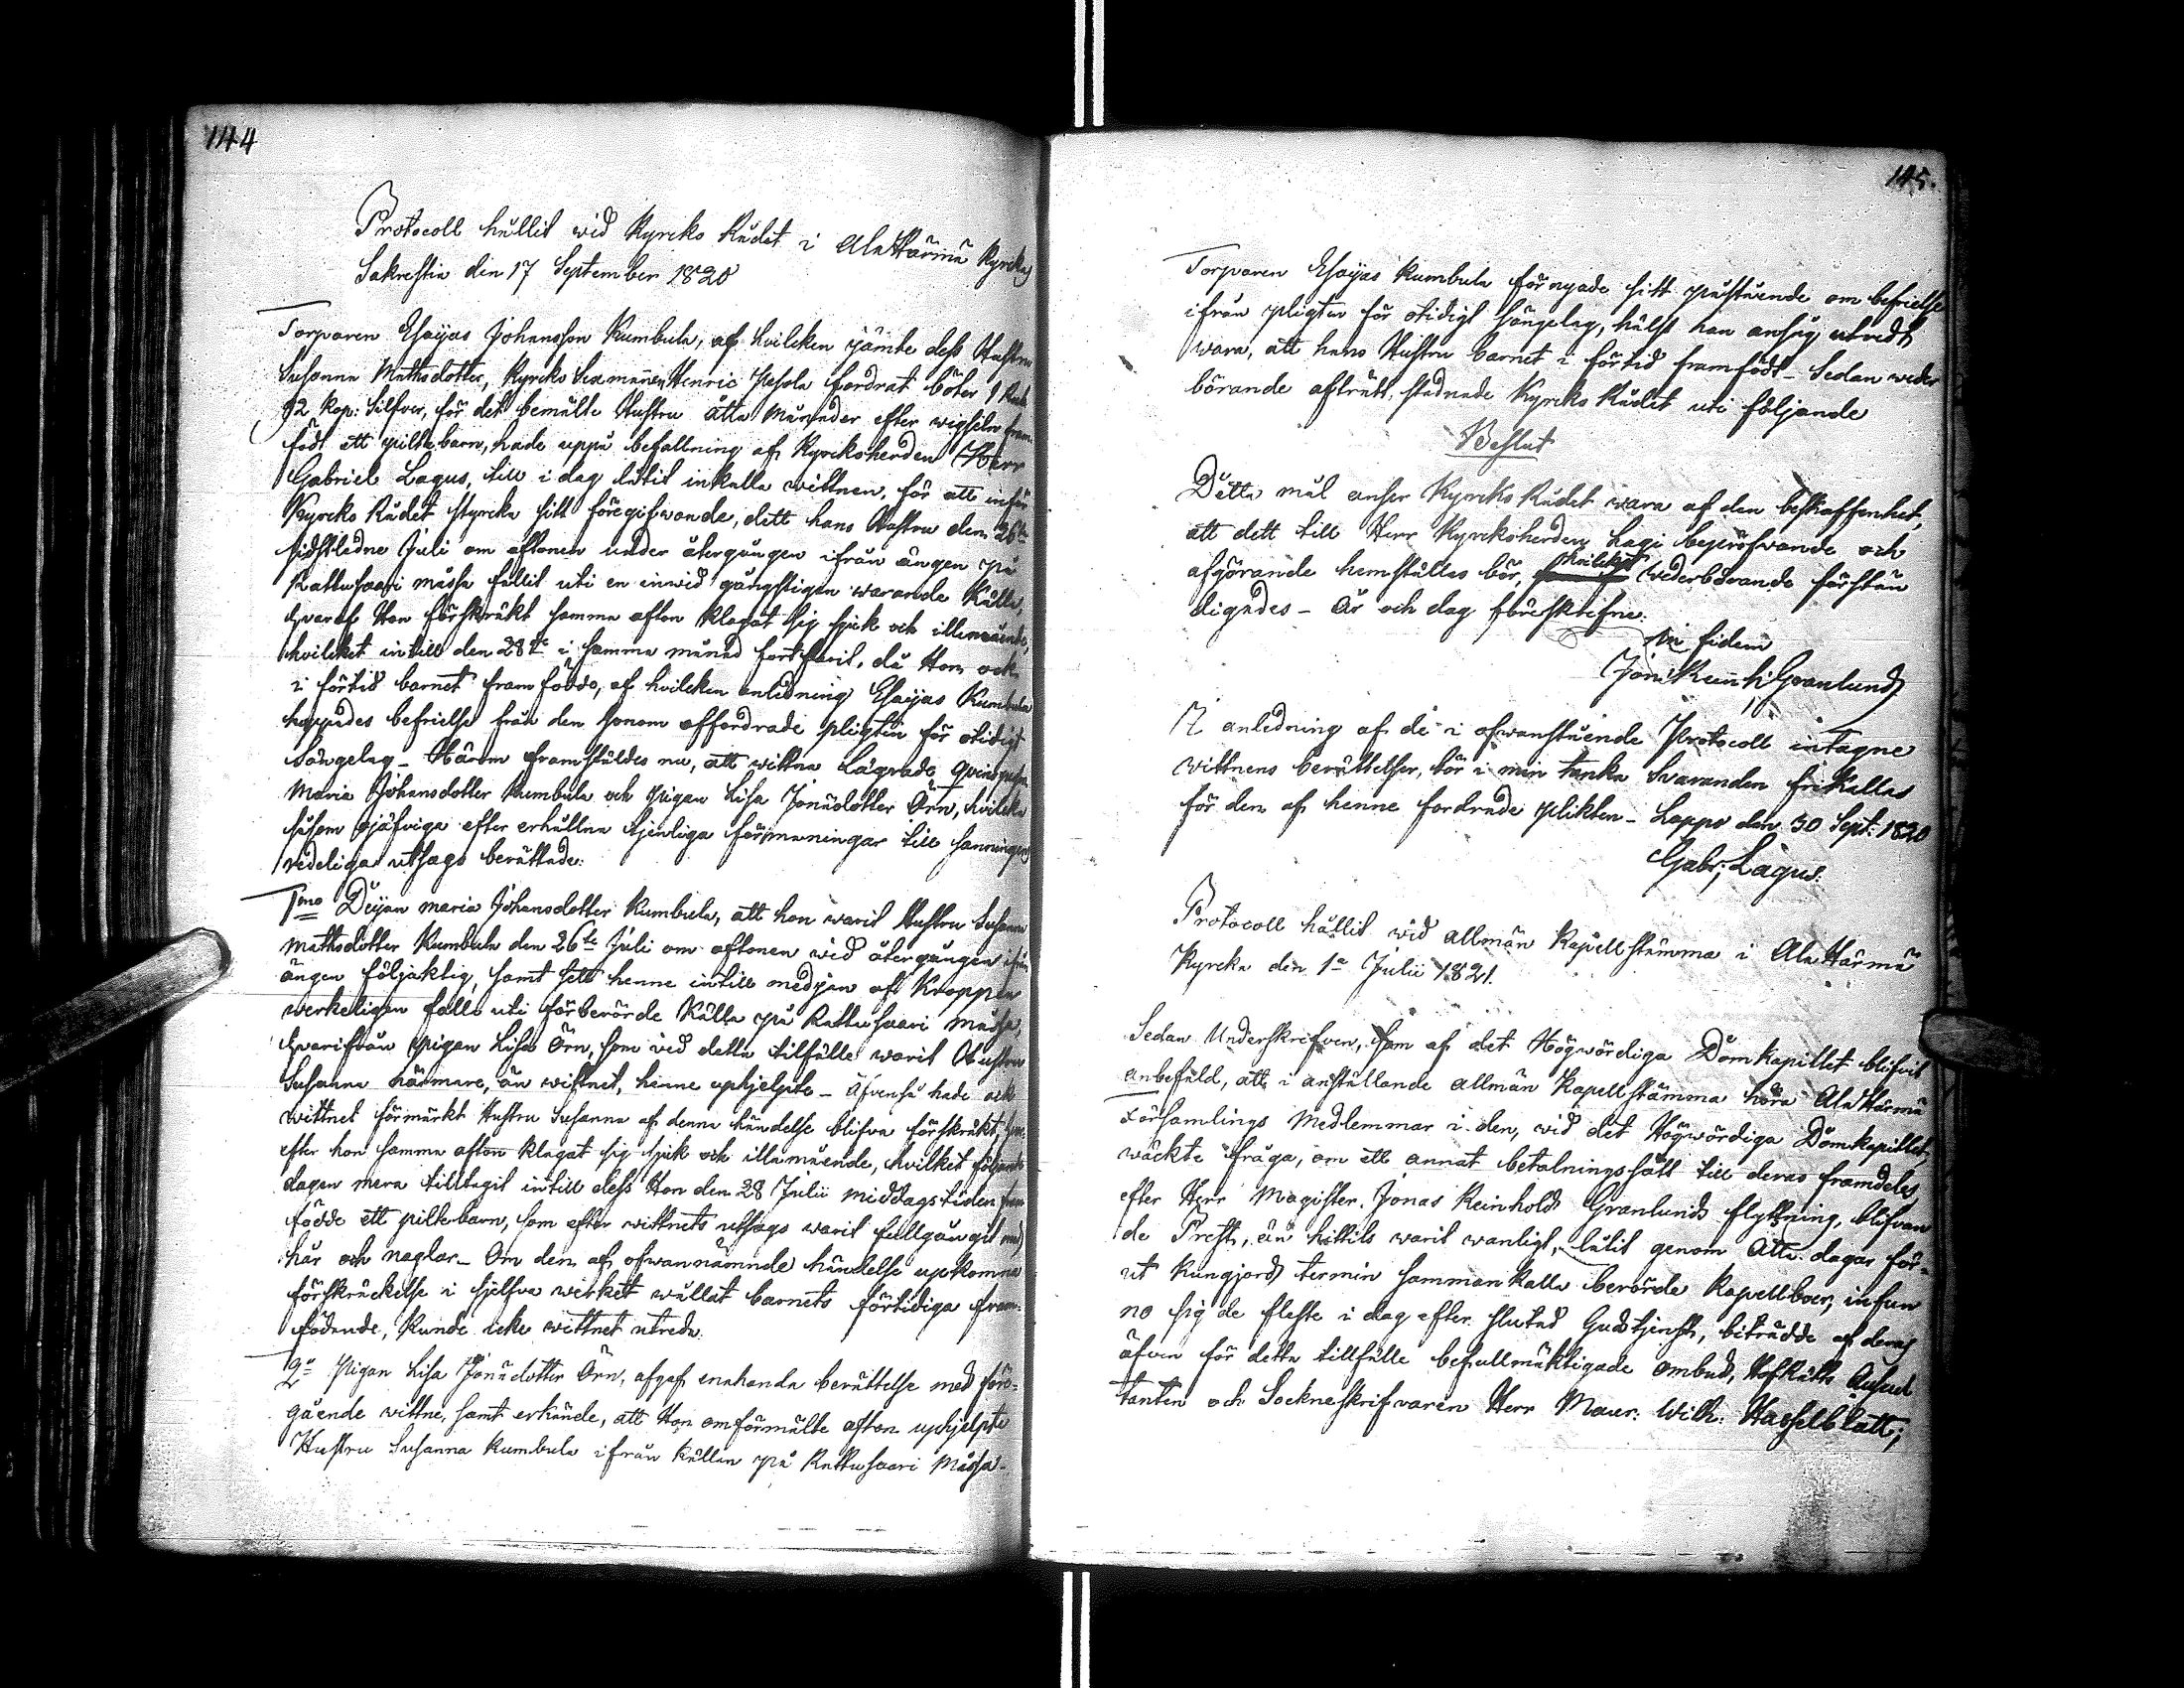 144
Protocoll hållit wid Kyrcko Rådet i AlaHärmä Kyrckas
Sakrestia den 17 September 1820
Torparen Esaijas Johansson Kumbula, af hvilcken jämte dess Hustru
Susanna Mathsdotter, Kyrcko Sexmannen Henric Pesola fordrat böter 1 Rub
92 kop: Silfver, för det bemälte Hustru åtta månader efter wigseln fram
födt ett piltebarn, hade uppå befallning af Kyrckoherden Herr
Gabriel Lagus, till i dag låtit inkalla wittnen, för att inför
Kyrcko Rådet styrcka sitt föregifwande, dett hans Hustru den 26te
sidstledne Juli om aftonen under återgången ifrån ängen på
Rattusaari måssa fallit uti en inwid gångstigen warande Källa,
hvaraf Hon förskräkt samma afton klagat sig sjuk och illamående,
hvilcket intill den 28de i samma månad fortfarit, då Hon ock
i förtid barnet framfödde, af hvilcken anledning Esaijas Kumbula
hoppades befrielse från den honom affordrade pligten för otidigt
Sängelag. Härom framstäldes nu, att wittna Lagrade Qvinspersn
Maria Johansdotter Kumbula och pigan Lisa Jonädotter Örn, hvilcka
såsom ojäfviga efter erhållna tjenliga förmaningar till sanningens
redeliga utsago berättade:
1mo Deijan Maria Johansdotter Kumbula, att hon warit Hustru Susanna
Mathsdotter Kumbula den 26te Juli om aftonen wid återgången ifrån
ängen följaktig, samt sett henne intill medjan af Kroppen
werkeligen falla uti förberörde Källa på Rattusaari måssa,
hvarifrån pigan Lisa Örn, som vid detta tilfälle warit Hustru
Susanna närmare, än wittnet, henne uphjelpte – äfvenså hade ock
wittnet förmärkt Hustru Susanna af denna händelse blifva förskräkt, här-
efter hon samma afton klagat sig sjuk och illamående, hvilcket följande
dagen mera tilltagit intill dess Hon den 28 Julii middagstiden fram
födde ett piltebarn, som efter wittnets utsago warit fullgångit med
hår och naglar. Om den af ofwannämnde händelse upkomna
förskräckelse i sjelfva wercket wållat barnets förtidiga fram-
födande, kunde icke wittnet utreda.
2o Pigan Lisa Jonädotter Örn, afgaf enahanda berättelse med före-
gående wittne, samt erkände, att Hon omförmälte afton uphjelpte
Hustru Susanna Kumbula ifrån källan på Rattusaari Måssa.
145.
Torparen Esaijas Kumbula förnyade sitt påstående om befrielse
ifrån pligten för otidigt sängelag, hälst han ansåg utredt
wara, att hans Hustru barnet i förtid framfödt – Sedan weder
börande afträtt, stadnade Kyrcko Rådet uti följande
Beslut
Detta mål anser Kyrcko Rådet wara af den beskaffenhet,
att dett till Herr Kyrckoherden Lagi bepröfwande och
afgörande hemställas bör, hvilcket wederbörande förstän
digades – År och dag föreskrifne.
in fidem
Jon: Reinh: Granlund
I anledning af de i ofwanstående Protocoll intagne
wittnens berättelser, bör i min tanka Svaranden frikallas
för den af henne fordrade plikten – Lappo den 30 Sept: 1820
Gabr: Lagus.
Protocoll hållit wid allmän Kapellstämma i AlaHärmä
Kyrcka den 1a Julii 1821.
Sedan Underskrifven, som af det Högwördiga Domkapitlet blifvit
anbefald, att i anställande allmän Kapellstämma höra AlaHärmä
Församlings Medlemmar i den, wid det Högwördiga Domkapitlet
wäckte fråga, om ett annat betalningssätt till deras framdeles
efter Herr Magister Jonas Reinhold Granlunds flyttning, blifvan
de Prest, än hittils warit wanligt, låtit genom åtta dagar för-
ut kungjord termin sammankalla berörde Kapellboer, infun
no sig de fleste i dag efter slutad Gudstjenst, biträdde af deras
äfven för detta tillfälle befullmäktigade ombud, HofRätts Auscul
tanten och Sockneskrifvaren Herr Maur: Wilh: Hasselblatt;